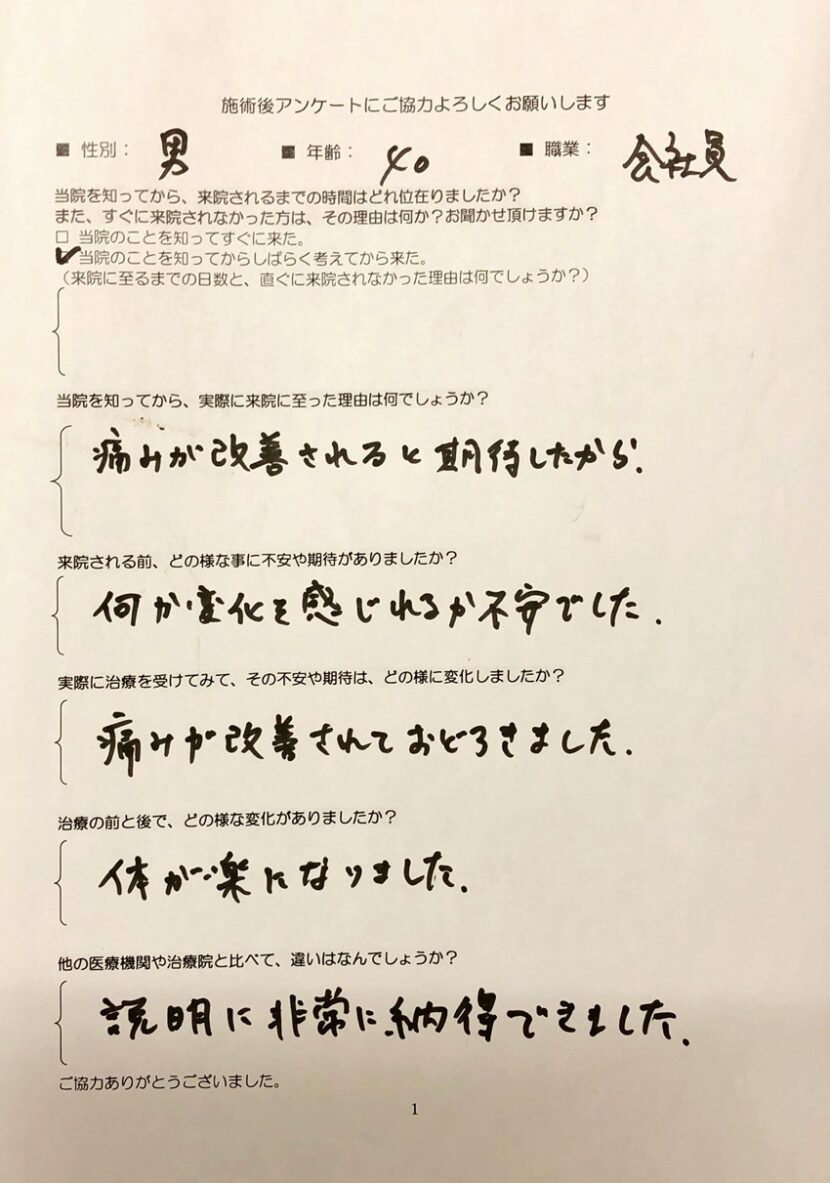 施術後アンケートにご協力よろしくお願いします
■ 性別： 男 ■ 年齢： 40 ■ 職業： 会社員
当院を知ってから、来院されるまでの時間はどれ位在りましたか？
また、すぐに来院されなかった方は、その理由は何か？お聞かせ頂けますか？
□ 当院のことを知ってすぐに来た。
✓当院のことを知ってからしばらく考えてから来た。
（来院に至るまでの日数と、直ぐに来院されなかった理由は何でしょうか？）
当院を知ってから、実際に来院に至った理由は何でしょうか？
痛みが改善されると期待したから.
来院される前、どの様な事に不安や期待がありましたか？
何か変化を感じれるか不安でした.
実際に治療を受けてみて、その不安や期待は、どの様に変化しましたか？
痛みが改善されておどろきました.
治療の前と後で、どの様な変化がありましたか？
体が楽になりました.
他の医療機関や治療院と比べて、違いはなんでしょうか？
説明に非常に納得できました.
ご協力ありがとうございました。
1